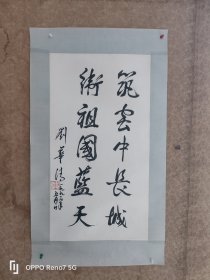 筑云中長城
衛祖國藍天
劉華清
OPPO Reno7 5G